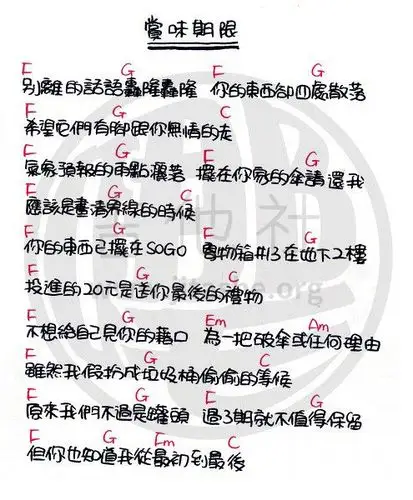 賞味期限
F G G
別離的話語轟隆轟隆 你的東西卻四處散落
F G C
希望它們有腳跟你無情的走
F G F G
氣象預報的雨點灑落 擺在你家的傘請還我
F G C
應該是畫清界線的時候
F G F G
你的東西已擺在SOGO 寄物箱#13在地下2樓
F G C
投進的20元是送你最後的禮物
F G Em Am
不想給自己見你的藉口 為一把破傘或任何理由
F G C
雖然我假扮成垃圾桶偷偷的等候
F G F G
原來我們不過是罐頭 過3期就不值得保留
F G Em C
但你也知道我從最初到最後